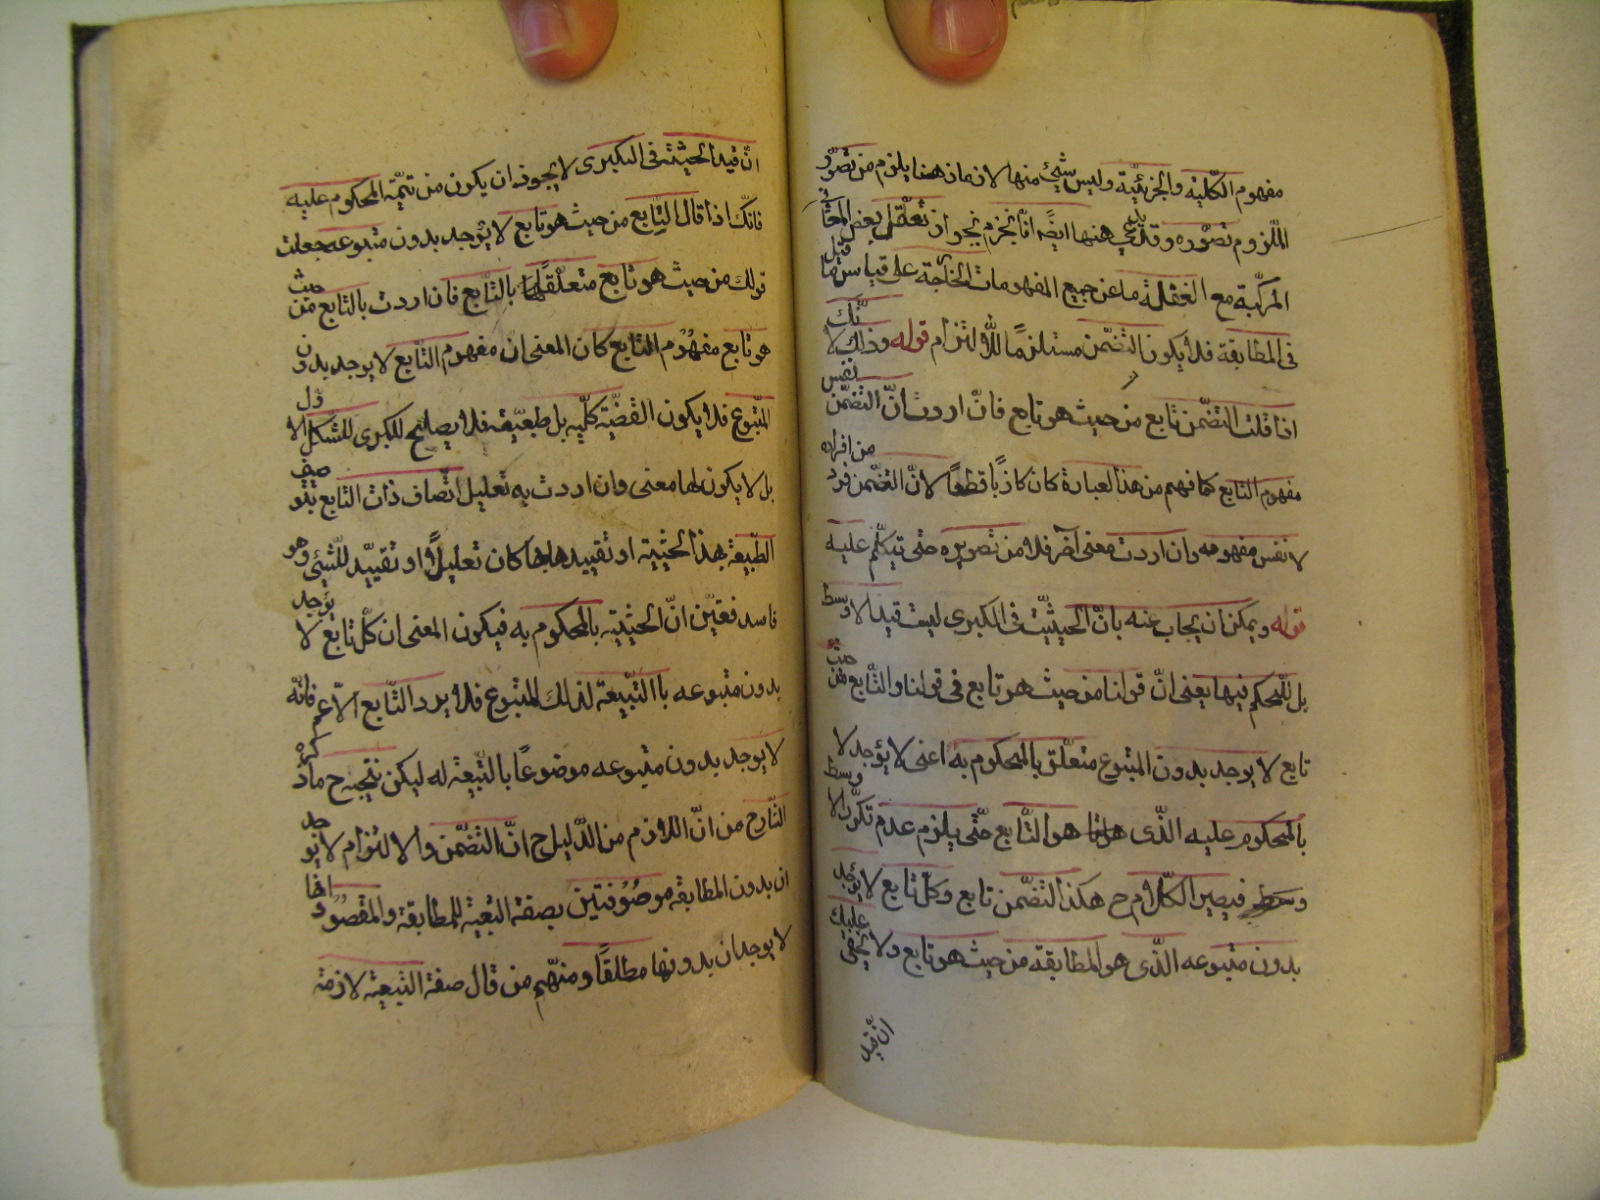 مفهوم الكلّية والجزئيّة وليس شئ منها لازما اذ هذا يلزم من تصوّر
الملزوم تصوّره وقد يدعي ههنا ايضًا انّا نجزم بجواز تعقّل بعض المعاني
المركّبة مع الغفلة ما عن جميع المفهومات الخارجة على قياس ما قيل
فى المطابقة فلا يكون التضمّن مستلزمًا للالتزام قوله وذلك لانّك
اذا قلت التضمّن تابع من حيث هو تابع فانّ اردت انّ التضمّن نفس
مفهوم التابع كما فهم من هذا لعبارة كان كاذبًا قطعًا لانّ التضمّن فرد من افراده
لا نفس مفهومه وان اردت معنى آخر فلا من تصويره حتى تيكلّم عليه
قوله ويمكن ان يجاب عنه بانّ الحيثيّت فى الكبرى ليست قيدا لاوسط
بل للحكم فيها يعنى انّ قولنا من حيث هو تابع فى قولنا والتّابع من حيث
تابع لا يوجد بدون المتبوع متعلّق بالمحكوم به اعنى لا يؤجد لا
بالمحكوم عليه الذّى هو التّابع حتّى يلزم عدم تكرّر الاوسط
وسط فيصير الكلام ح هكذا التضمّن تابع وكلّ تابع لا يوجد
بدون متبوعه الذّى هو المطابقه من حيث هو تابع ولا يخفى عليك
انّ قيد
انّ قيد الحيثيّة فى الكبرى لا يجوز ان يكون من تتمّة المحكوم عليه
فانّك اذا قال التّابع من حيث هو تابع لا يؤجد بدون متبوعه جعلت
قولك من حيث هو تابع متعلّقًا بالتّابع فان اردت بالتابع من حيث
هو تابع مفهُوم التابع كان المعنى انّ مفهوم التّابع لا يوجد بدون
المتبوع فلا يكون القضيّة كلّيه بل طبعيّة فلا يصلح للكبرى للشكل الاوّل
بل لا يكون لها معنى وان اردت به تعليل اتّصاف ذات التابع بتوصف
الطّبيعة بهذا الحيثية او تقييدها بها كان تعليلاً او تقييد للشئ وهو
فاسد فتعيّن انّ الحيثيّة بالمحكوم به فيكون المعنى ان كلّ تابع لا يوجد
بدون متبوعه با التّبيّعة لذلك المتبوع فلا يرد التّابع الاّعم فانّه
لا يوجد بدون متبوعه موضوعًا بالتّبيعة له ليكن نتيجه ح ما ذكره
الشّارح من انّ اللازم من الدّليل ح انّ التضمّن والالتزام لا يوجد
ان بدون المطابقة موصُوفتين بصفة التبعيّة للمطابقة والمقصُود انّها
لا يوجدان بدونها مطلقًا ومنهّم من قال صفة التبعيّة لازمة